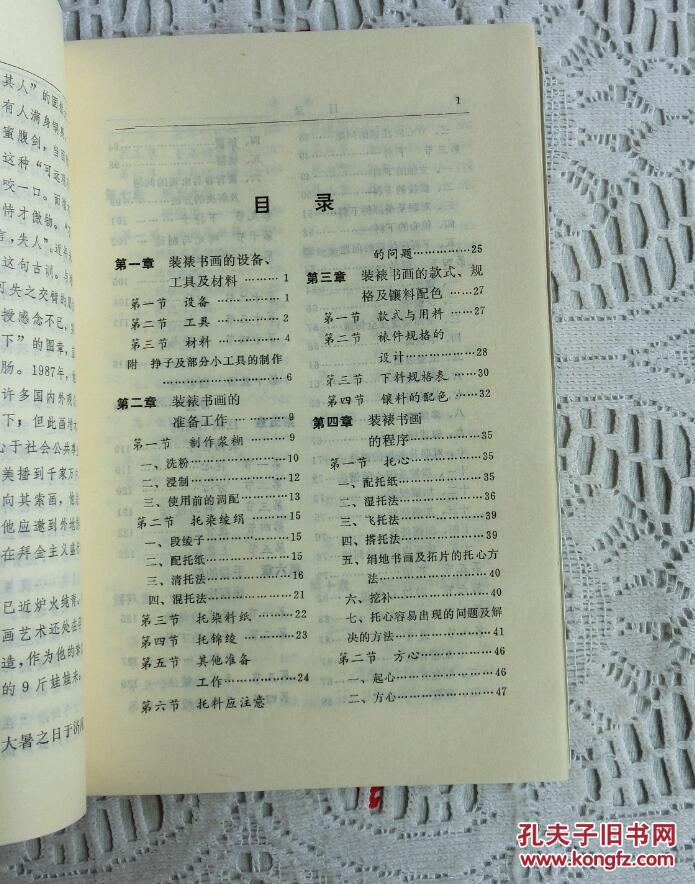 其人”的面
有人满身铜
蜜腹剑，当面
这种“可远观
咬一口。
恃才傲物。
言，失人”。近年
这句古训。与
可失之交臂的
授感念不已，
下”的图案，
肠。1987年，他
许多国内外观
下；但此画增
心于社会公共事
美播到千家万
向其索画，他
他应邀到外地
在拜金主义盛
已近炉火纯青。
画艺术还处
造，作为他的
的9斤娃娃来。
大暑之日于济
1
目 录
第一章 装裱书画的设备、
工具及材料 ……… 1
第一节 设备 ………… 1
第二节 工具 ………… 2
第三节 材料 ………… 4
附 挣子及部分小工具的制作
………………… 6
第二章 装裱书画的
准备工作 ………… 9
第一节 制作浆糊 ……… 9
一、洗粉 ……………… 10
二、浸制 ……………… 12
三、使用前的调配 ……… 13
第二节 托染绫绢 ……… 15
一、段绫子 …………… 15
二、配托纸 …………… 15
三、清托法 …………… 16
四、混托法 …………… 21
第三节 托染料纸 ……… 22
第四节 托锦绫 ………… 23
第五节 其他准备
工作 …………… 24
第六节 托料应注意
的问题 …………… 25
第三章 装裱书画的款式、规
格及镶料配色 ……… 27
第一节 款式与用料 …… 27
第二节 裱件规格的
设计 …………… 28
第三节 下料规格表 …… 30
第四节 镶料的配色 …… 32
第四章 装裱书画
的程序 …………… 35
第一节 托心 …………… 35
一、配托纸 …………… 35
二、湿托法 …………… 36
三、飞托法 …………… 39
四、搭托法 …………… 39
五、绢地书画及拓片的托心方
法 ……………… 40
六、挖补 ……………… 40
七、托心容易出现的问题及解
决的方法 …………… 41
第二节 方心 …………… 46
一、起心 ……………… 46
二、方心 ……………… 47
孔夫子旧书网
www.kongfz.com